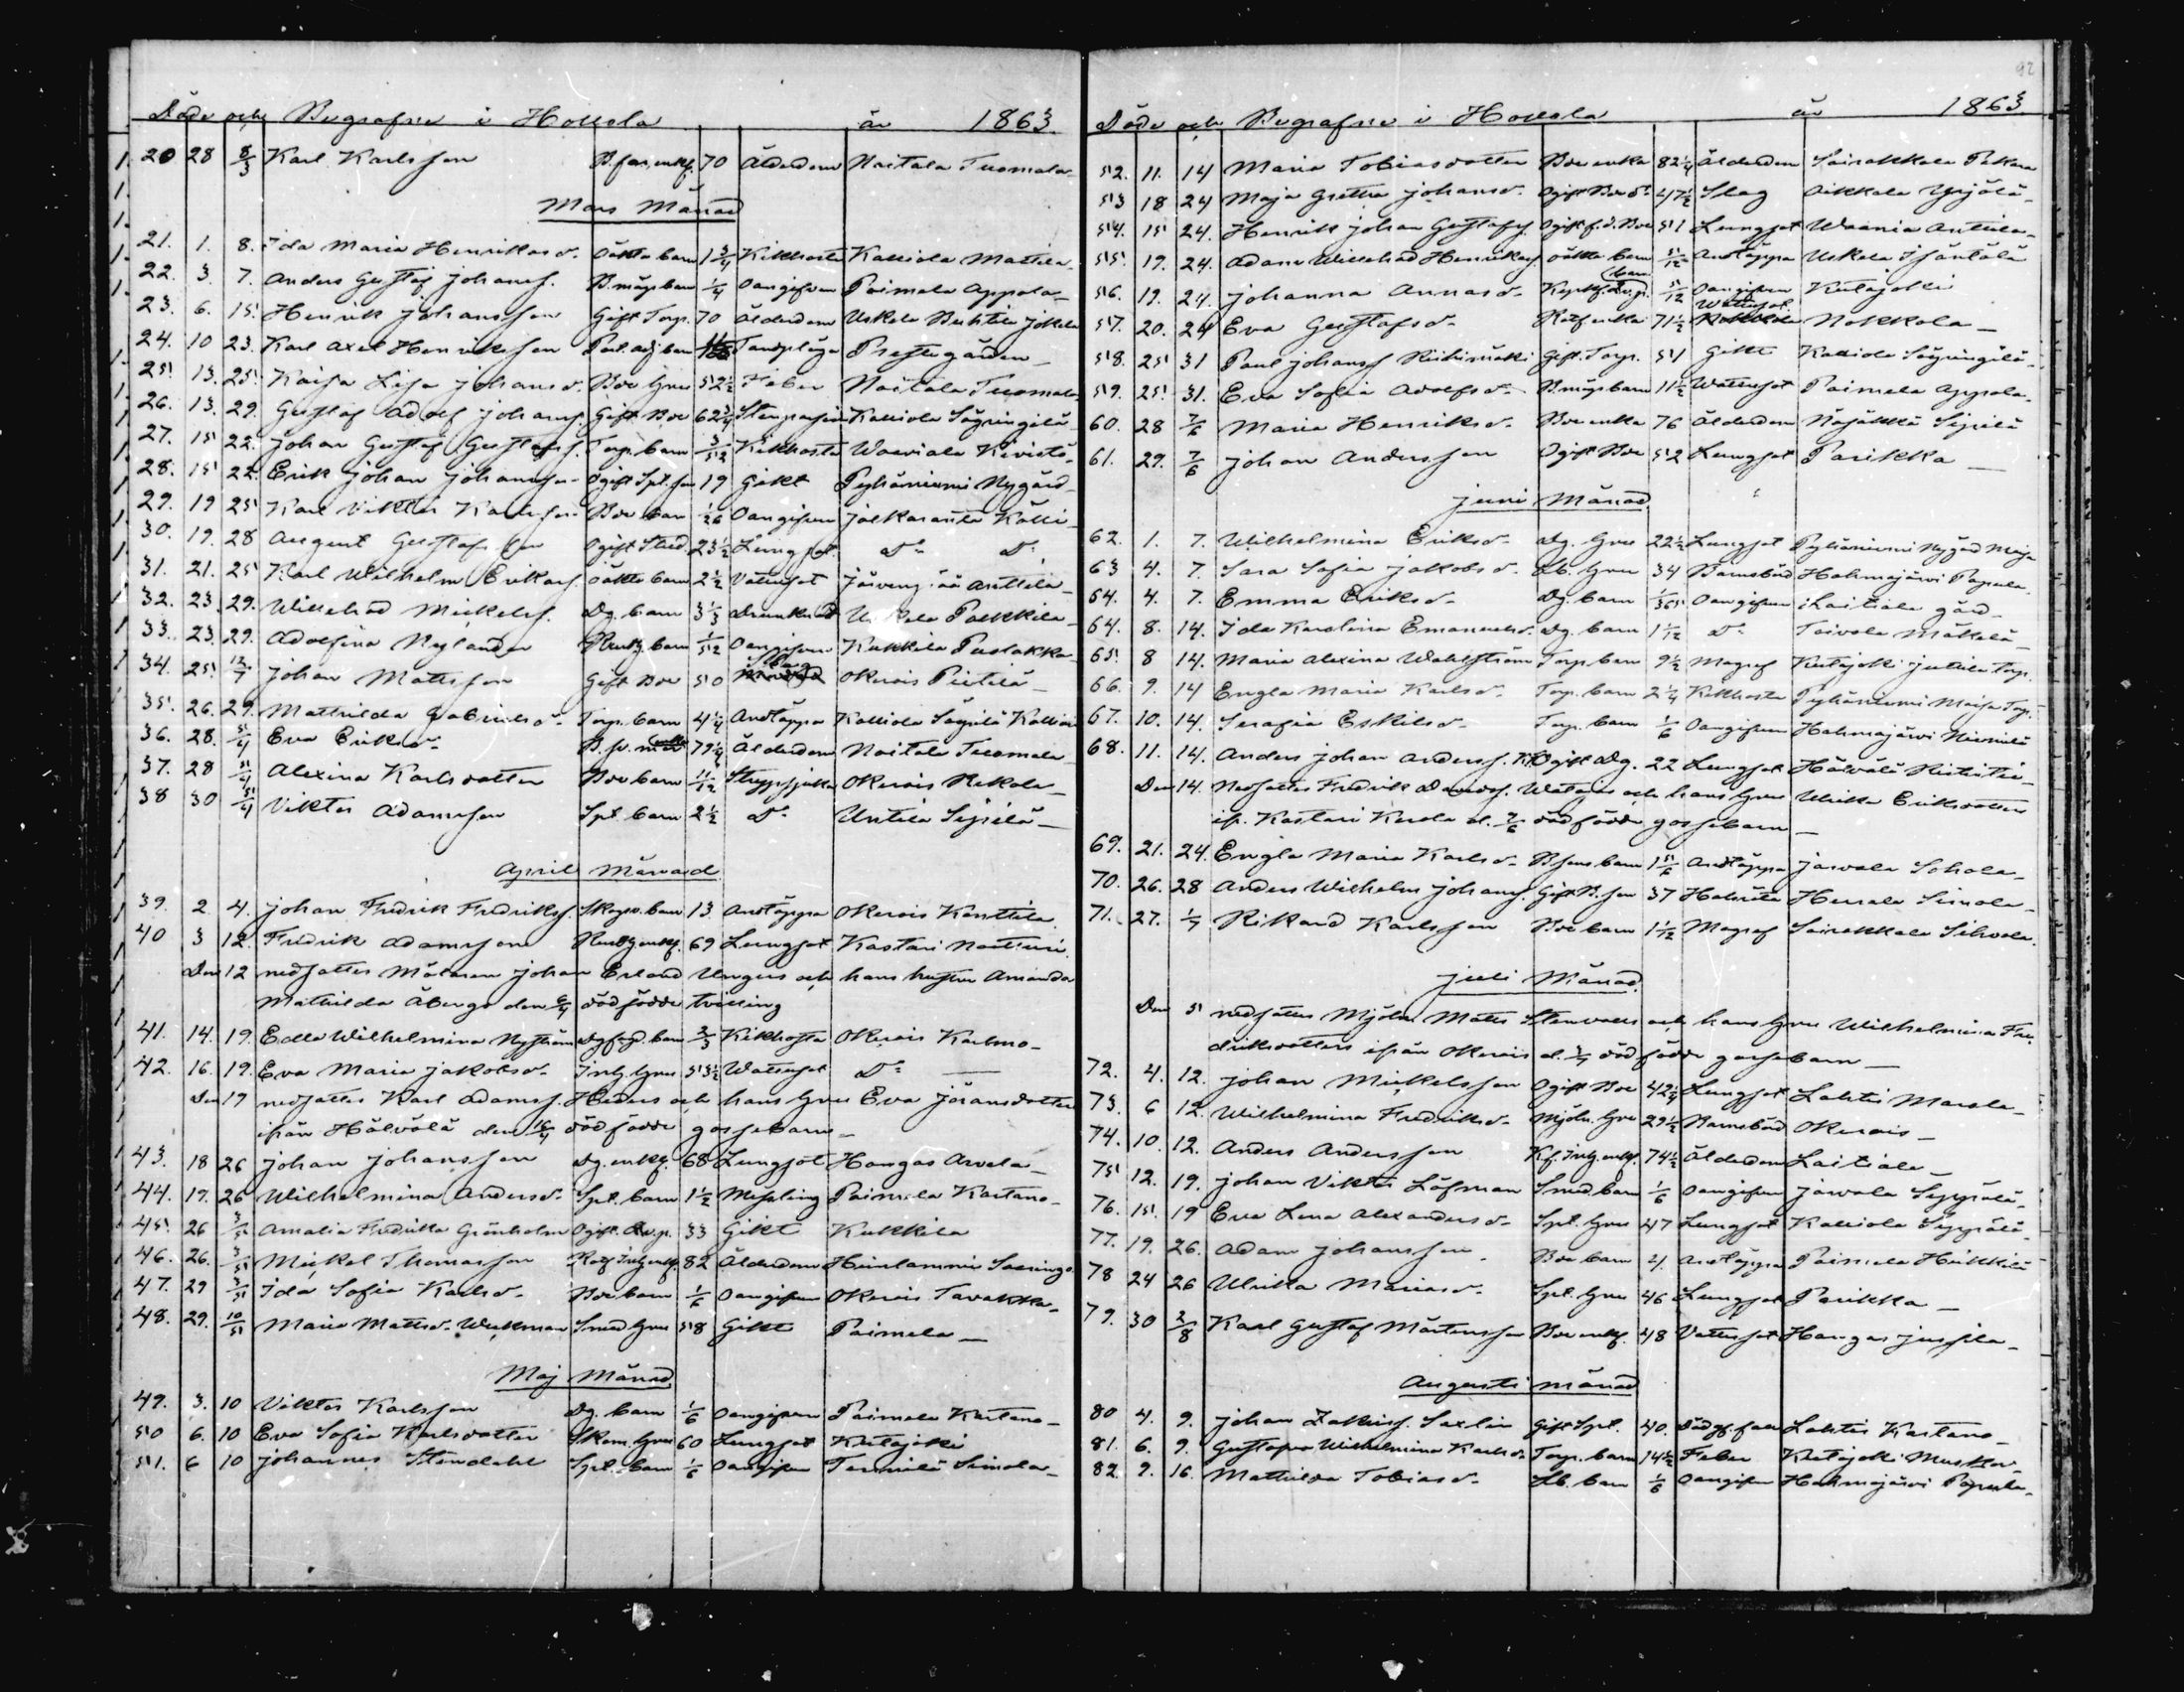 Döde och Begrafne i Hollola år 1863.
20 28 8/3 Karl Karlsson B.far, enkl. 70 Ålderdom Noitala Tuomala
Mars Månad
21. 1. 8. Ida Maria Henriksd. oäkta barn 1 3/4 Kikhosta Kalliola Mattila
22. 3. 7. Anders Gustaf Johanss. B.mågs barn 1/4 Oangifven Paimela Appola
23. 6. 15. Henrik Johansson Gift Torp. 70 Ålderdom Uskela Jokela
24. 10 23. Karl Axel Henriksson barn Tandplågor Prestegården
25. 13. 25. Kaisa Lisa Johansd. Boe hru 52 1/2 Feber Noitala Tuomala
26. 13. 29. Gustaf Adolf Johanss. Gift Boe 62 3/4 Stenpassion Kalliola
27. 15 22. Johan Gustaf Gustafss. Torp. barn 3/52 Kikhosta Waniala Kivistö
28. 15 22. Erik Johan Johansson Ogift Spt. son 19 Gikt Pyhäniemi Nygård
29. 19 25 Karl Viktor Karlsson Boe barn 1/26 Oangifven Jalkaranta Källi
30. 19. 28 August Gustafsson Ogift Stud. 23 1/2 Lungsot D:o D:o
31. 21. 25 Karl Wilhelm Erikss. oäkta barn 2 1/2 Vattusot Anttila
32. 23. 29. Willehad Mickelss. Dg. barn 3 1/3 Drunknad Uskela Pakkila
33. 23. 29. Adolfina Nylander barn 1/52 Oangifven Kukkila
34. 25. 12/4 Johan Mattsson Gift Boe 50 Okerois Pietilä
35. 26. 29. Mathilda Gabrielsd. Torp. barn 4 1/4 Andtäppa Kalliola
36. 28. 5/4 Eva Eriksd. 79 1/4 Ålderdom Noitala Tuomala
37. 28 5/4 Alexina Karlsdotter Boe barn 11/12 Strypsjuka Okerois Rekola
38 30 5/4 Viktor Adamsson Spt. barn 2 1/2 D:o Untila Seppälä
April Månad.
39. 2. 4. Johan Fredrik Fredrikss. Skogsv. barn 13. Andtäppa Okerois Konttila
40 3 12. Fredrik Adamsson enkl. 69 Lungsot Kastari
Den 12 nedsattes Målaren Johan Erland Ungers och hans hustru Amanda
Mathilda Åbergs den 6/4 dödfödde tvilling
41. 14. 19. Edla Wilhelmina Nyström barn 2/3 Kikhosta Okerois Karlmo
42. 16. 19. Eva Maria Jakobsd. Inh. hru 53 1/2 Wattusot D:o
Den 19 nedsattes Karl Adamss. Heders och hans hru Eva Göransdotters
ifrån Hälvälä den 16/4 dödfödde gossebarn
43. 18 26 Johan Johansson Dg. enkl. 68 Lungsot Hangas Arvela
44. 19. 26 Wilhelmina Andersd. Spt. barn 1 1/2 Messling Paimela Kartano
45. 26 3/5 Amalia Fredrika Grönholm Ogift 33 Gikt Kukkila
46. 26. 3/5 Mickel Thomasson 82 Ålderdom Heinlammi
47. 29 3/5 Ida Sofia Karlsd. Boe barn 1/6 Oangifven Okerois Tavakka
48. 29. 10/5 Maria Mattsd. Weckman Smed hru 58 Gikt Paimela
Maj Månad
49. 3. 10 Viktor Karlsson Dg. barn 1/6 Oangifven Paimela Kartano
50 6. 10 Eva Sofia Karlsdotter hru 60 Lungsot Kutajoki
51. 6 10 Johannes Stendahl Spt. barn 1/6 Oangifven Tennilä Simola
92
Döde och Begrafne i Hollola år 1863.
52. 11. 14 Maria Tobiasdotter Boe enka 82 1/4 Ålderdom Sairakkala Pekkra
53 18 24 Maja Gretha Johansd. Ogift Boe d:r 47 1/2 Slag Aikkala Yrjölä
54. 15 24. Henrik Johan Gustafss. Ogift Boe 51 Lungsot Waania Anttila
55. 19. 24. Adam Willehad Henrikss. oäkta barn 5/12 Andtäppa Uskela
56. 19. 24. Johanna Annasd. barn 5/12 Oangifven Kutajoki
57. 20. 24 Eva Gustafsd. enka 71 1/2 Wattusot Nokkola
58. 25 31 Paul Johanss. Riihimäki Gift. Torp. 51 Gikt Kalliola
59. 25. 31. Eva Sofia Adolfsd. B.mågs barn 11 1/2 Wattusot Paimela Appola
60. 28 7/6 Maria Henriksd. Boe enka 76 Ålderdom
61. 29. 7/6 Johan Andersson Ogift Boe 52 Lungsot Parikka
Juni Månad.
62. 1. 7. Wilhelmina Eriksd. Dg. hru 22 1/2 Lungsot Pyhäniemi Nygård Maja
63 4. 7. Sara Sofia Jakobsd. hru 34 Barnsbörd Hahmajärvi Papula
64. 4. 7. Emma Eriksd. Dg. barn 1/365 Oangifven Laitiala gård
64. 8. 14. Ida Karolina Emanuelsd. Dg. barn 1 1/12 D:o Toivola Mäkelä
65. 8 14. Maria Alexina Wahlström Torp. barn 9 1/2 Magref Kutajoki Torp.
66. 9. 14 Engla Maria Karlsd. Torp. barn 2 1/4 Kikhosta Pyhäniemi Maija Torp.
67. 10. 14. Serafia Eskilsd. Torp. barn 1/6 Oangifven Hahmajärvi Niemilä
68. 11. 14. Anders Johan Anderss. Ogift Dg. 22 Lungsot Hälvälä
Den 14. Nedsattes Fredrik Davidss. och hans hru Ulrika Eriksdotters
ifr. Kastari Kurola d. 7/6 dödfödde gossebarn
69. 21. 24. Engla Maria Karlsd. B.sons barn 1 5/6 Andtäppa Jarvala Sohola
70. 26. 28 Anders Wilhelm Johanss. Gift B. son 37 Halsröta Herrala Simola
71. 27. 1/7 Rikard Karlsson Boe barn 1 1/12 Magref Sairakkala Sihvola
Juli Månad.
Den 5 nedsattes Mjöln. Matts Stenvalls och hans hru Wilhelmina Fre-
driksdotters ifrån Okerois d. 3/7 dödfödde gossebarn
72. 4. 12. Johan Mickelsson Ogift Boe 42 1/4 Lungsot Lahtis Marola
73. 6 12. Wilhelmina Fredriksd. Mjöln. hru 29 1/2 Barnsbörd Okerois
74. 10. 12. Anders Andersson enkl. 74 1/2 Ålderdom Laitiala
75 12. 19. Johan Viktor Löfman Smed. barn 1/6 Oangifven Jarvala Seppälä
76. 15. 19 Eva Lena Alexandersd. Spt. hru 47 Lungsot Kalliola Seppälä
77. 19. 26. Adam Johansson Boe barn 4. Andtäppa Paimela Heikkilä
78 24 26 Ulrika Mariasd. Spt. hru 46 Lungsot Parikka
79. 30 2/8 Karl Gustaf Mårtensson Boe enkl. 48 Vattusot Hangas Jussila
Augusti Månad
80 4. 9. Johan Zakriss. Saxlin Gift Spt. 40. Lahtis Kartano
81. 6. 9. Gustafva Wilhelmina Karlsd. Torp. barn 14 1/2 Feber Kutajoki
82. 9. 16. Mathilda Tobiasd. barn 1/6 Oangifven Hahmajärvi Papula